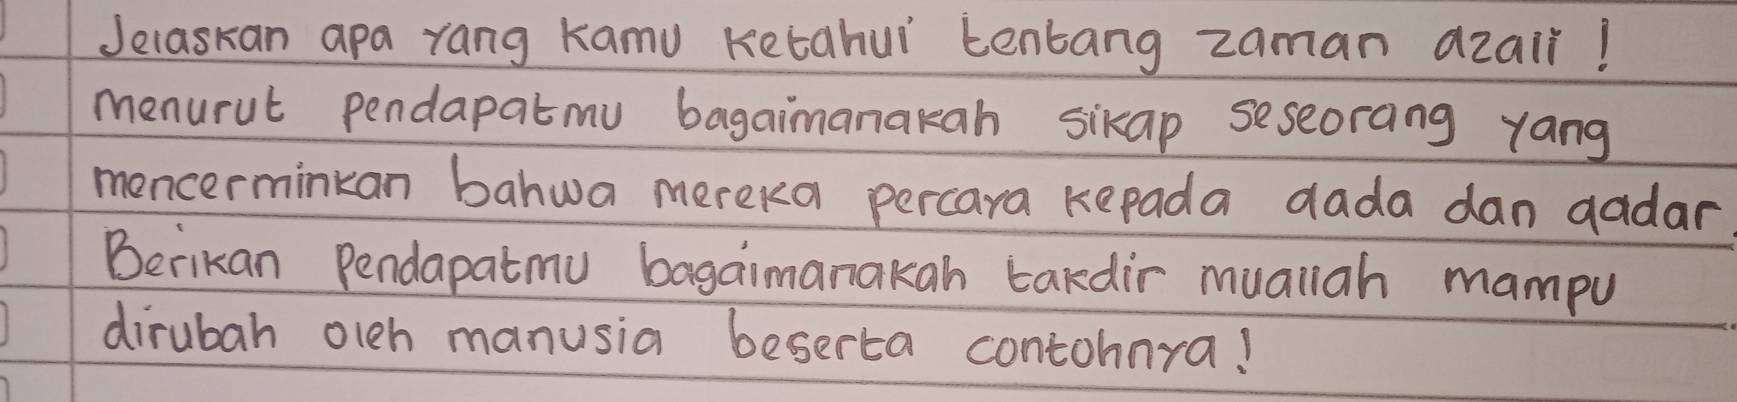 Jelaskan apa yang kamu ketahui tentang zaman azali!
menurut pendapatmu bagaimanakah sikap seseorang yang
mencerminkan bahwa mereka percaya kepada qada dan qadar.
Berikan pendapatmu bagaimanakah takdir muallah mampu
dirubah oleh manusia beserta contohnya!